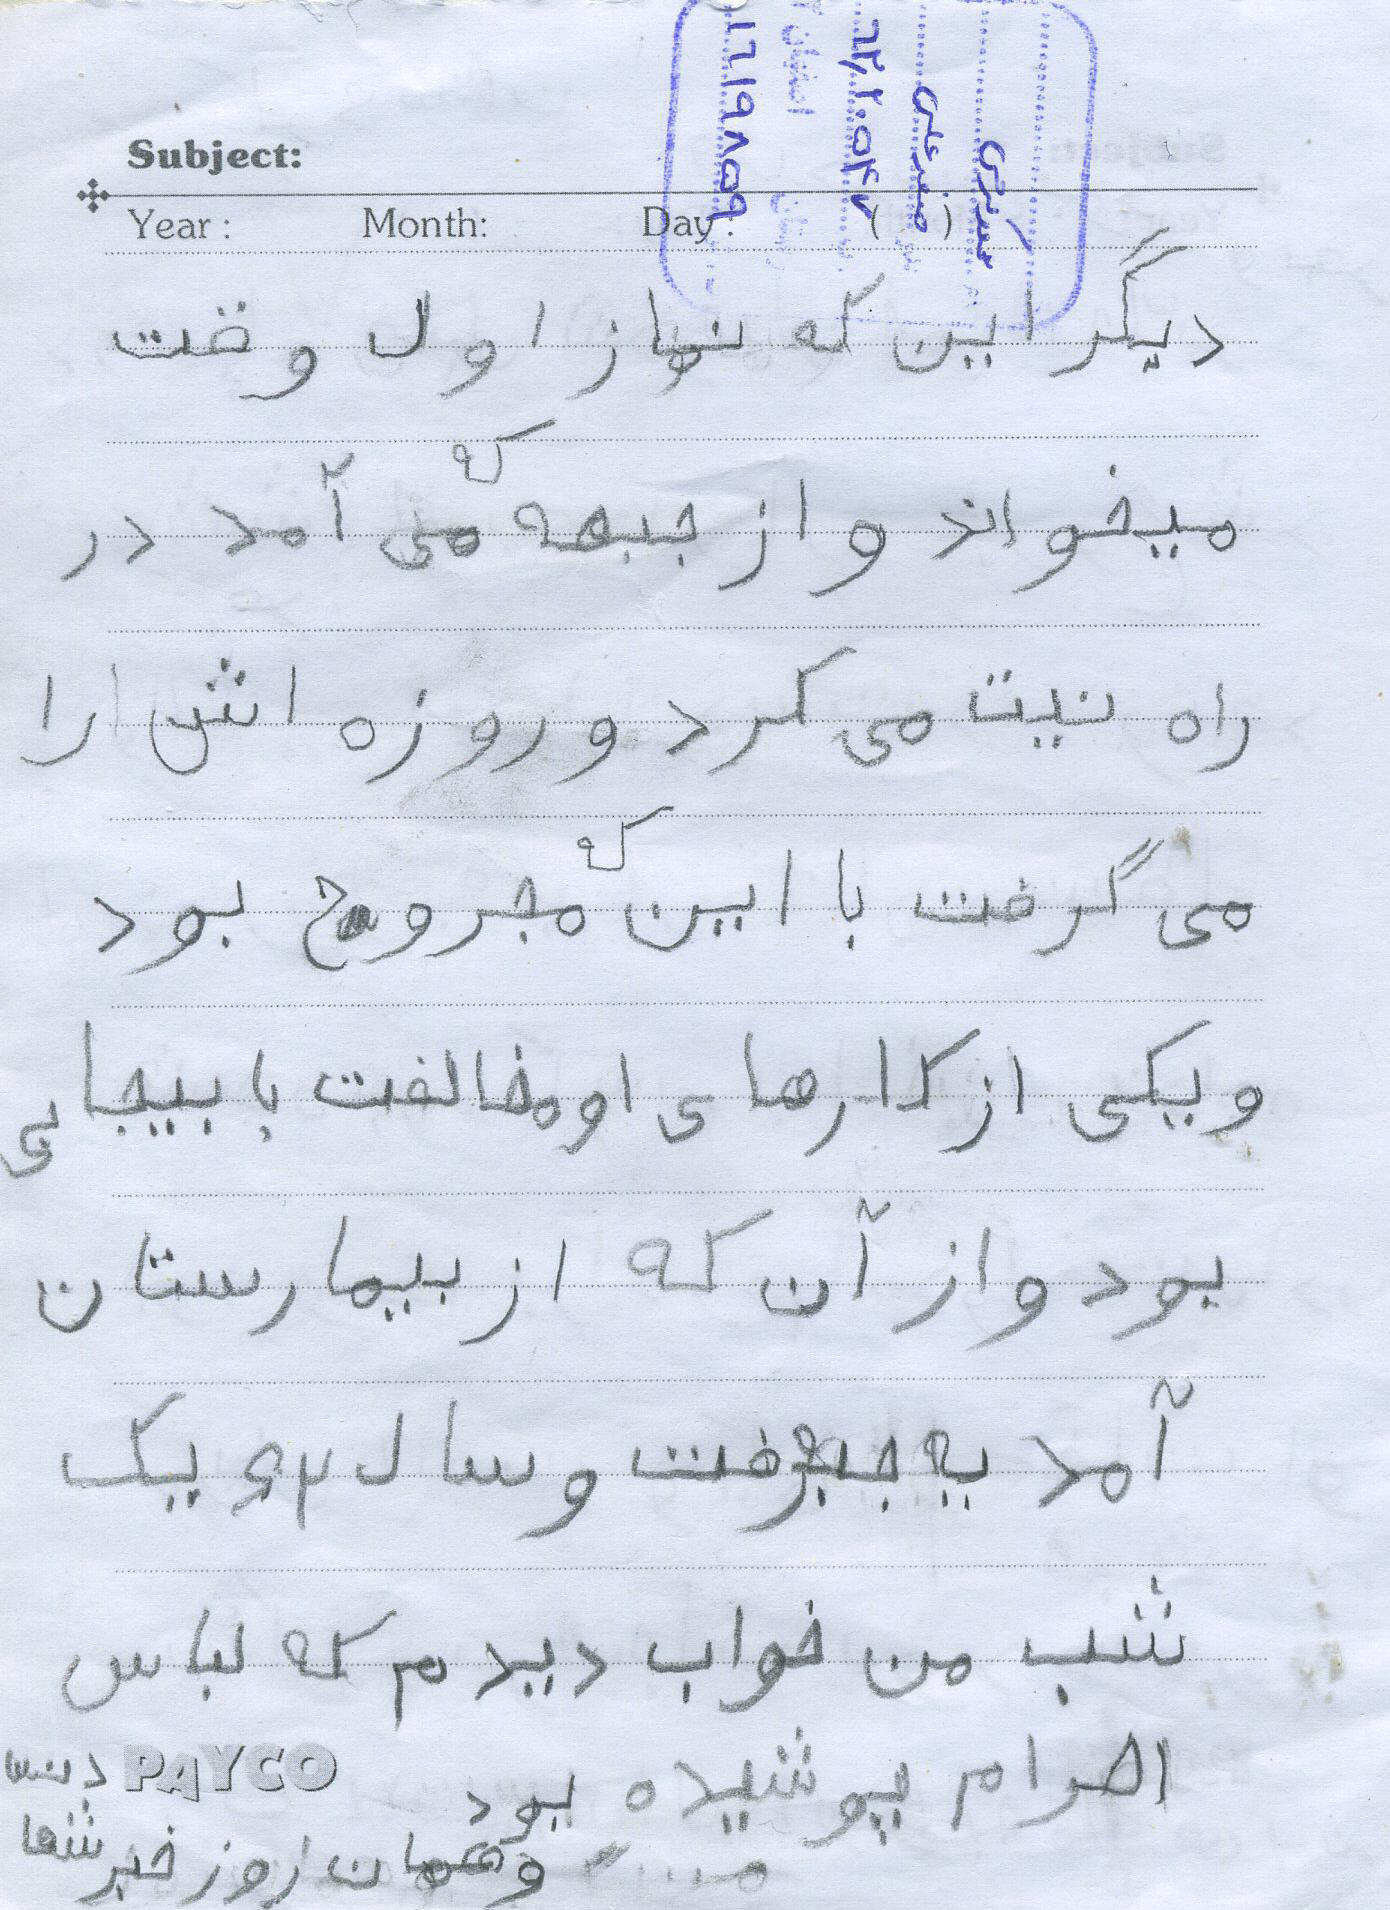 Subject:
Year: Month: Day: ( )
صفرعلی
6202047
16198559
دیگر این که نماز اول وقت
میخواند و از جبهه که می آمد در
راه نیت می کرد و روزه اش را
می گرفت با این که مجروح بود
و یکی از کارهای او مخالفت با بیجابی
بود و از آن که از بیمارستان
آمد به جبهه رفت و سال ۶۲ یک
شب من خواب دیدم که لباس
احرام پوشیده بود
PAYCO
و همان روز خبر شما